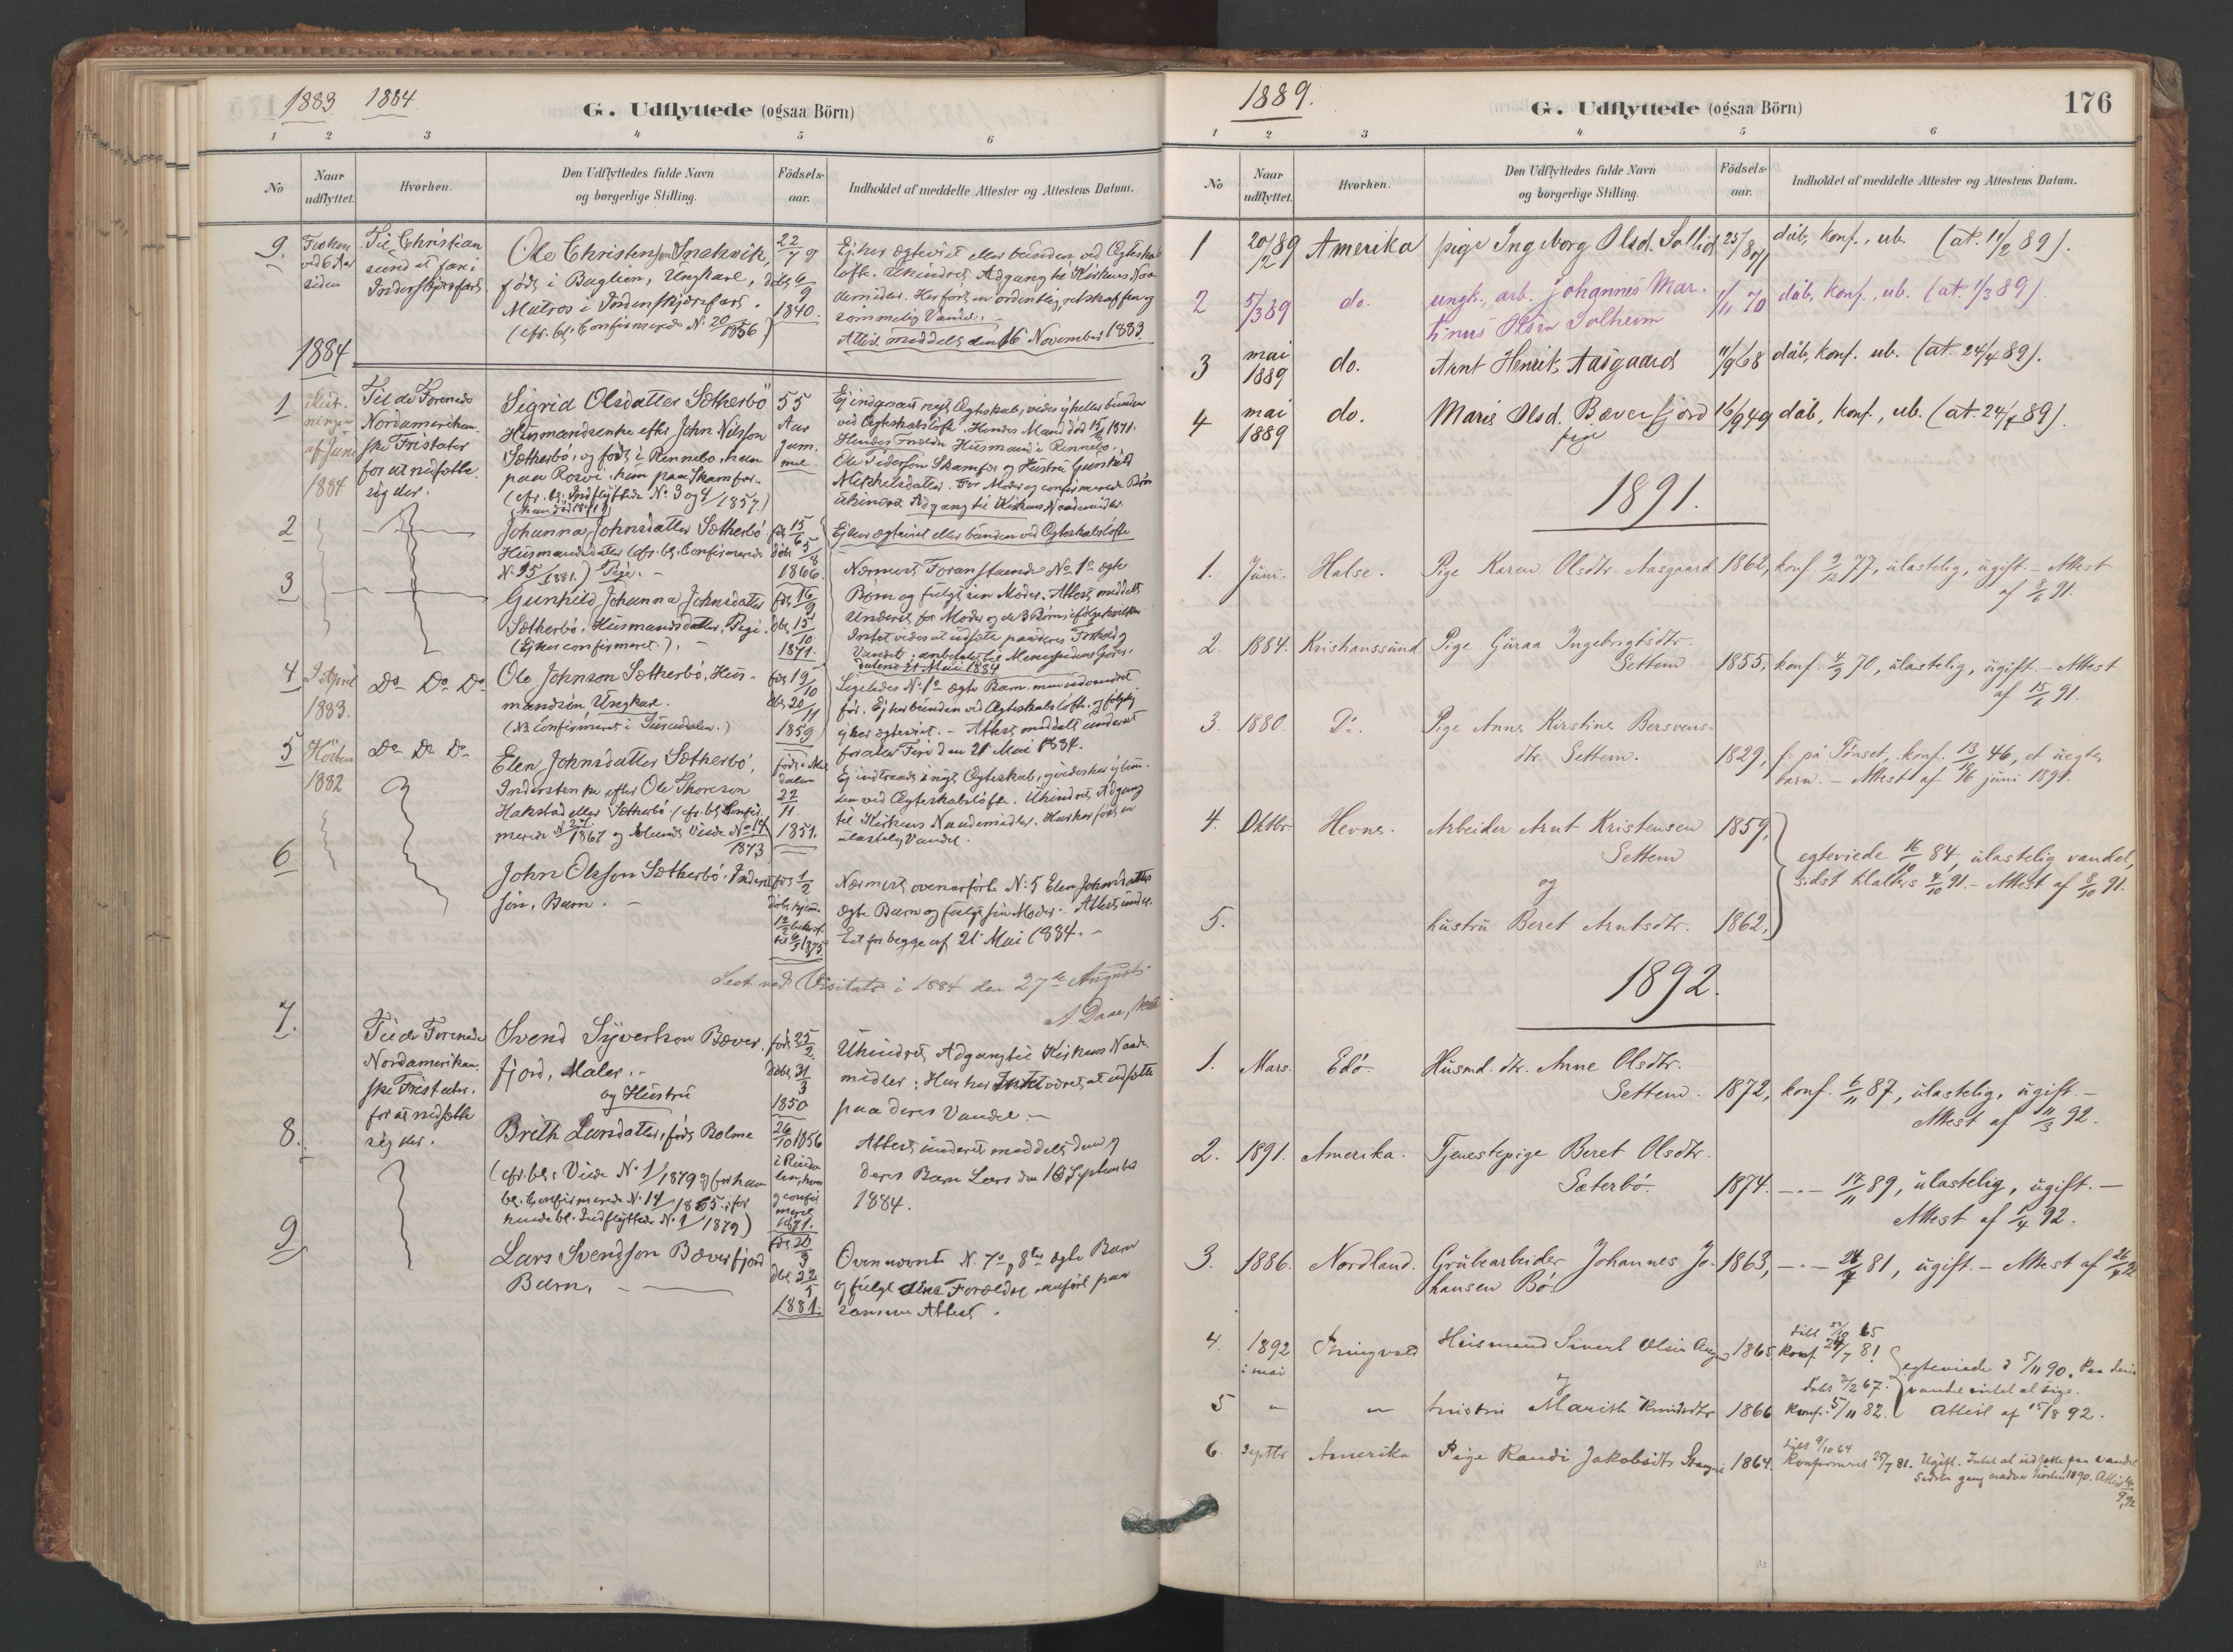 1883 1884.
G. Udflyttede (ogsaa Börn)
1 2 3 4 5 6
No
Naar udflyttet.
Hvorhen.
Den Udflyttedes fulde Navn og borgerlige Stilling.
Födsels-aar.
Indholdet af meddelte Attester og Attestens Datum.
9.
siden
Til Christian
sund at fare i
Ole Christensen
född i Bughen, Ungkarl,
Matros i
(cfr. bl. Confirmerede N. 20/1856)
22/7
döbt 6/9
1840.
Ej her ægteviet eller bunden ved Ægteskabs
löfte. Uhindret Adgang til Kirkens Naa
demidler. Her fört en ordentlig, retskaffen og
sømmelig Vandel.
Attest meddelt den 16 November 1883.
1884.
1
af Juni
1884
Til de Forenede
Nordamerikan
ske Fristater
for at nedsætte
sig der.
Sigrid Olsdatter Sætherbö
Husmandsenke efter John Nilsson
Sætherbö, og född i Rennebo, han
(cfr. bl. Indflyttede No 3 og 4/1857.)
55
Aar
gam.
mel.
Ej indgaaet nyt Ægteskab, vides ej heller bunden
ved Ægteskabslöfte. Hendes Mand död 1871.
Hendes Forældre Husmand i Rennebo
Ole Pedersen Skamfer og Hustru Gunhild
Mikkelsdatter. For Moder og confirmerede Börn
uhindret Adgang til Kirkens Naademidler.
2
Johanna Johnsdatter Sætherbö
Husmandsdatter (cfr. bl. Confirmerede
N. 15/1881.) Pige.
föd 15/6
döbt 5/8
1866.
Ej her ægteviet eller bunden ved Ægteskabslöfte
3
Gunhild Johanna Johnsdatter
Sætherbö, Husmandsdatter, Pige.
(Ej her confirmeret.)
föd 16/9
dbt. 15/10
1871.
Nærmest Foranstaaende No 1s ægte
Børn og følge sin Moder. Attest meddelt
underet for Moder og de 3 Børn ifölge hvilken
Intet vides at udsætte paa deres Forhold og
Vandel; anbefalet til Menighedens Goder.
dateret 21 Mai 1884
4
2 April
1883.
Do Do Do
Ole Johnson Sætherbö, Hus-
mandssön Ungkarl.
(NB Confirmeret i Surendalen.)
föd 19/10
dbt. 20/11
1859
Ligeledes N. 1s ægte Barn. men udvandret
för. Ej her bunden ved Ægteskabslöfte, og følgelig
ej her ægteviet. - Attest meddelt underet
for alle Fire den 21 Mai 1884.
5
Hösten
1882
Do Do Do
Elen Johnsdatter Sætherbö,
Inderstenke efter Ole Thoreson
Hakstad eller Sætherbö (cfr. bl. Confir
merede N 27/1867 og blandt Viede No 14/1873
född i Mel
dalen
22/11
1851.
Ej indtraadt i nyt Ægteskab, ej vides her ej bun-
den ved Ægteskabslöfte. Uhindret Adgang
til Kirkens Naademidler. Hun har fört en
ulastelig Vandel.
6
John Olsson Sætherbö, Inderst
sön, Barn.
föd 1/2
döbt hjemme
1875
Nærmest ovenanförte N. 5 Elen Johnsdatters
ægte Barn og følge sin Moder. Attest under-
Eet for begge af 21 Mai 1884.
Seet ved Visitats i 1884 den 27de August
A Daae,
7.
Til de Forenede
Nordamerikan
ske Fristater.
for at nedsætte
sig der.
Svend Syvertson Bæver-
fjord, Maler.
og Hustru
föd 25/2
döbt 31/3
1850
Uhindret Adgang til Kirkens Naade-
midler: Har her Intet været at udsætte
paa deres Vandel.
8.
Brith Larsdatter, föd Bolme
(cfr. bl. Viede No 1/1879 og for ham
bl. Confirmerede N. 14/1865; for
hende bl. Indflyttede N. 1/1879)
26/10 1856
i Rinda
len, hvor
og confir
meret
1871.
Attest underet meddelt dem og
deres Barn Lars den 16 September
1884.
9
Lars Svendson Bæverfjord
Barn.
föd 20/3
dbt 22/5
1881.
Ovennævnte N. 7s og 8tes ægte Barn
og følge sine Forældre anfört paa
samme Attest.
1889.
G. Udflyttede (ogsaa Börn)
176
1 2 3 4 5 6
No
Naar udflyttet.
Hvorhen.
Den Udflyttedes fulde Navn og borgerlige Stilling.
Födsels-aar.
Indholdet af meddelte Attester og Attestens Datum.
1 20/2 89 Amerika pige Ingeborg Olsd. Sollid 25/8 dåb, konf., ub. (at. 11/2 89).
2 5/3 89 do. ungk., arb. Johannes Mar-
tinus Olsen Solheim 1/11 70 dåb, konf., ub. (at. 1/3 89)
3 mai 1889 do. Arnt Henrik Aasgaard 11/9 68 dåb, konf. ub. (at. 24/4 89).
4 mai 1889 do. Marie Olsd. Bæverfjord 16/9 49 dåb, konf., ub. (at. 24/4 89).
pige
1891.
1. Juni. Halse. Pige Karen Olsdtr. Aasgaard 1862, konf. 2/12 77, ulastelig, ugift. - Attest
af 8/6 91.
2. 1884. Kristianssund Pige Guraa Ingebrigtsdtr.
Settem 1855, konf. 4/9 70, ulastelig, ugift. - Attest
af 15/6 91.
3. 1880. Do. Pige Anne Kirstine Bersvens-
dtr. Settem. 1829, f. på Tönset, konf. 13/19 46, et uegte
barn. - Attest af 16 juni 1891.
4. Oktbr Hevne. Arbeider Arnt Kristensen 1859,
Settem
og
egteviede 16/10 84, ulastelig vandel,
sidst til alters 4/10 91. - Attest af 8/10 91.
5. hustru Beret Arntsdtr. 1862,
1892.
1. Mars. Edö. Husmd. dtr. Anne Olsdtr.
Settem. 1872, konf. 6/11 87, ulastelig, ugift. -
Attest af 11/3 92.
2. 1891. Amerika. Tjenestepige Beret Olsdtr.
Sæterbö. 1874. -"- 17/11 89, ulastelig, ugift. -
Attest af 1/4 92.
3. 1886. Nordland. Grubearbeider Johannes Jo- 1863, -"- 24/7 81, ugift. - Attest af 26/4 92
hansen Bö.
4. 1892 i mai Husmand Sivert Olsen 1865 döbt 22/10 65
Konf. 24/7 81
egteviede d 5/11 90. Paa deres
vandel intet at sige.
Attest af 15/8 92.
og
5 " " hustru Marith Knudsdtr 1866 döbt 3/2 67.
Konf. 5/11 82.
6. Septbr Amerika Pige Randi Jakobsdtr 1864. döbt 9/10 64
Konfirmeret 25/7 81. Ugift. Intet at udsætte paa vandel
Sidste gang nadver hösten 1890. Attest
9 92